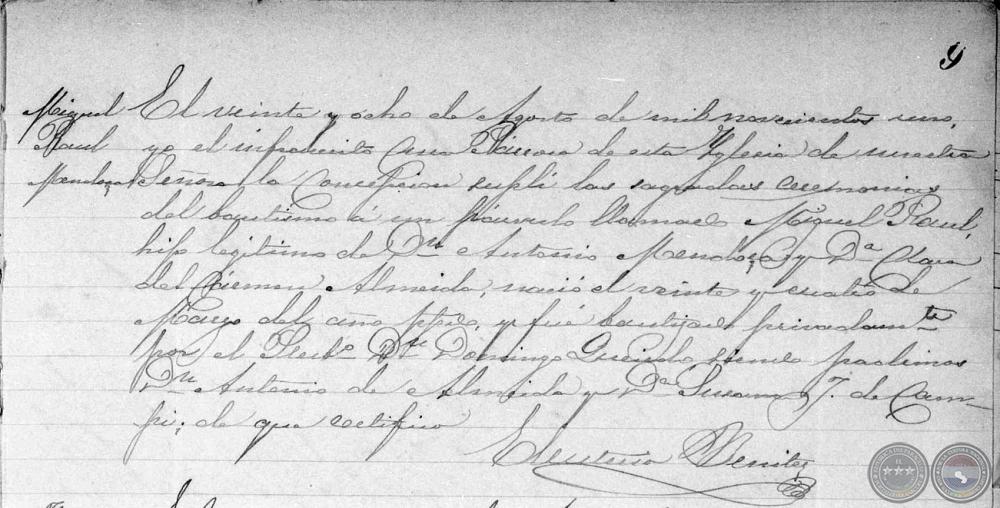 9
Miguel
Raul
Mendoza
El veinte y ocho de Agosto de mil novecientos uno,
yo el infrascrito Cura Párroco de esta Yglesia de nuestra
Señora la Concepcion suplí las sagradas ceremonias
del bautismo á un párvulo llamado Miguel Raul,
hijo legítimo de Dn Antonio Mendoza, y Da Clara
del Cármen Almeida; nació el veinte y cuatro de
Marzo del año ppdo, y fué bautizado privadamte
por el Presbo Dn Domingo siendo padrinos
Dn Antonio de Almeida y Da Susana J. de Cam-
pi; de que certifico
Eleuterio Benitez